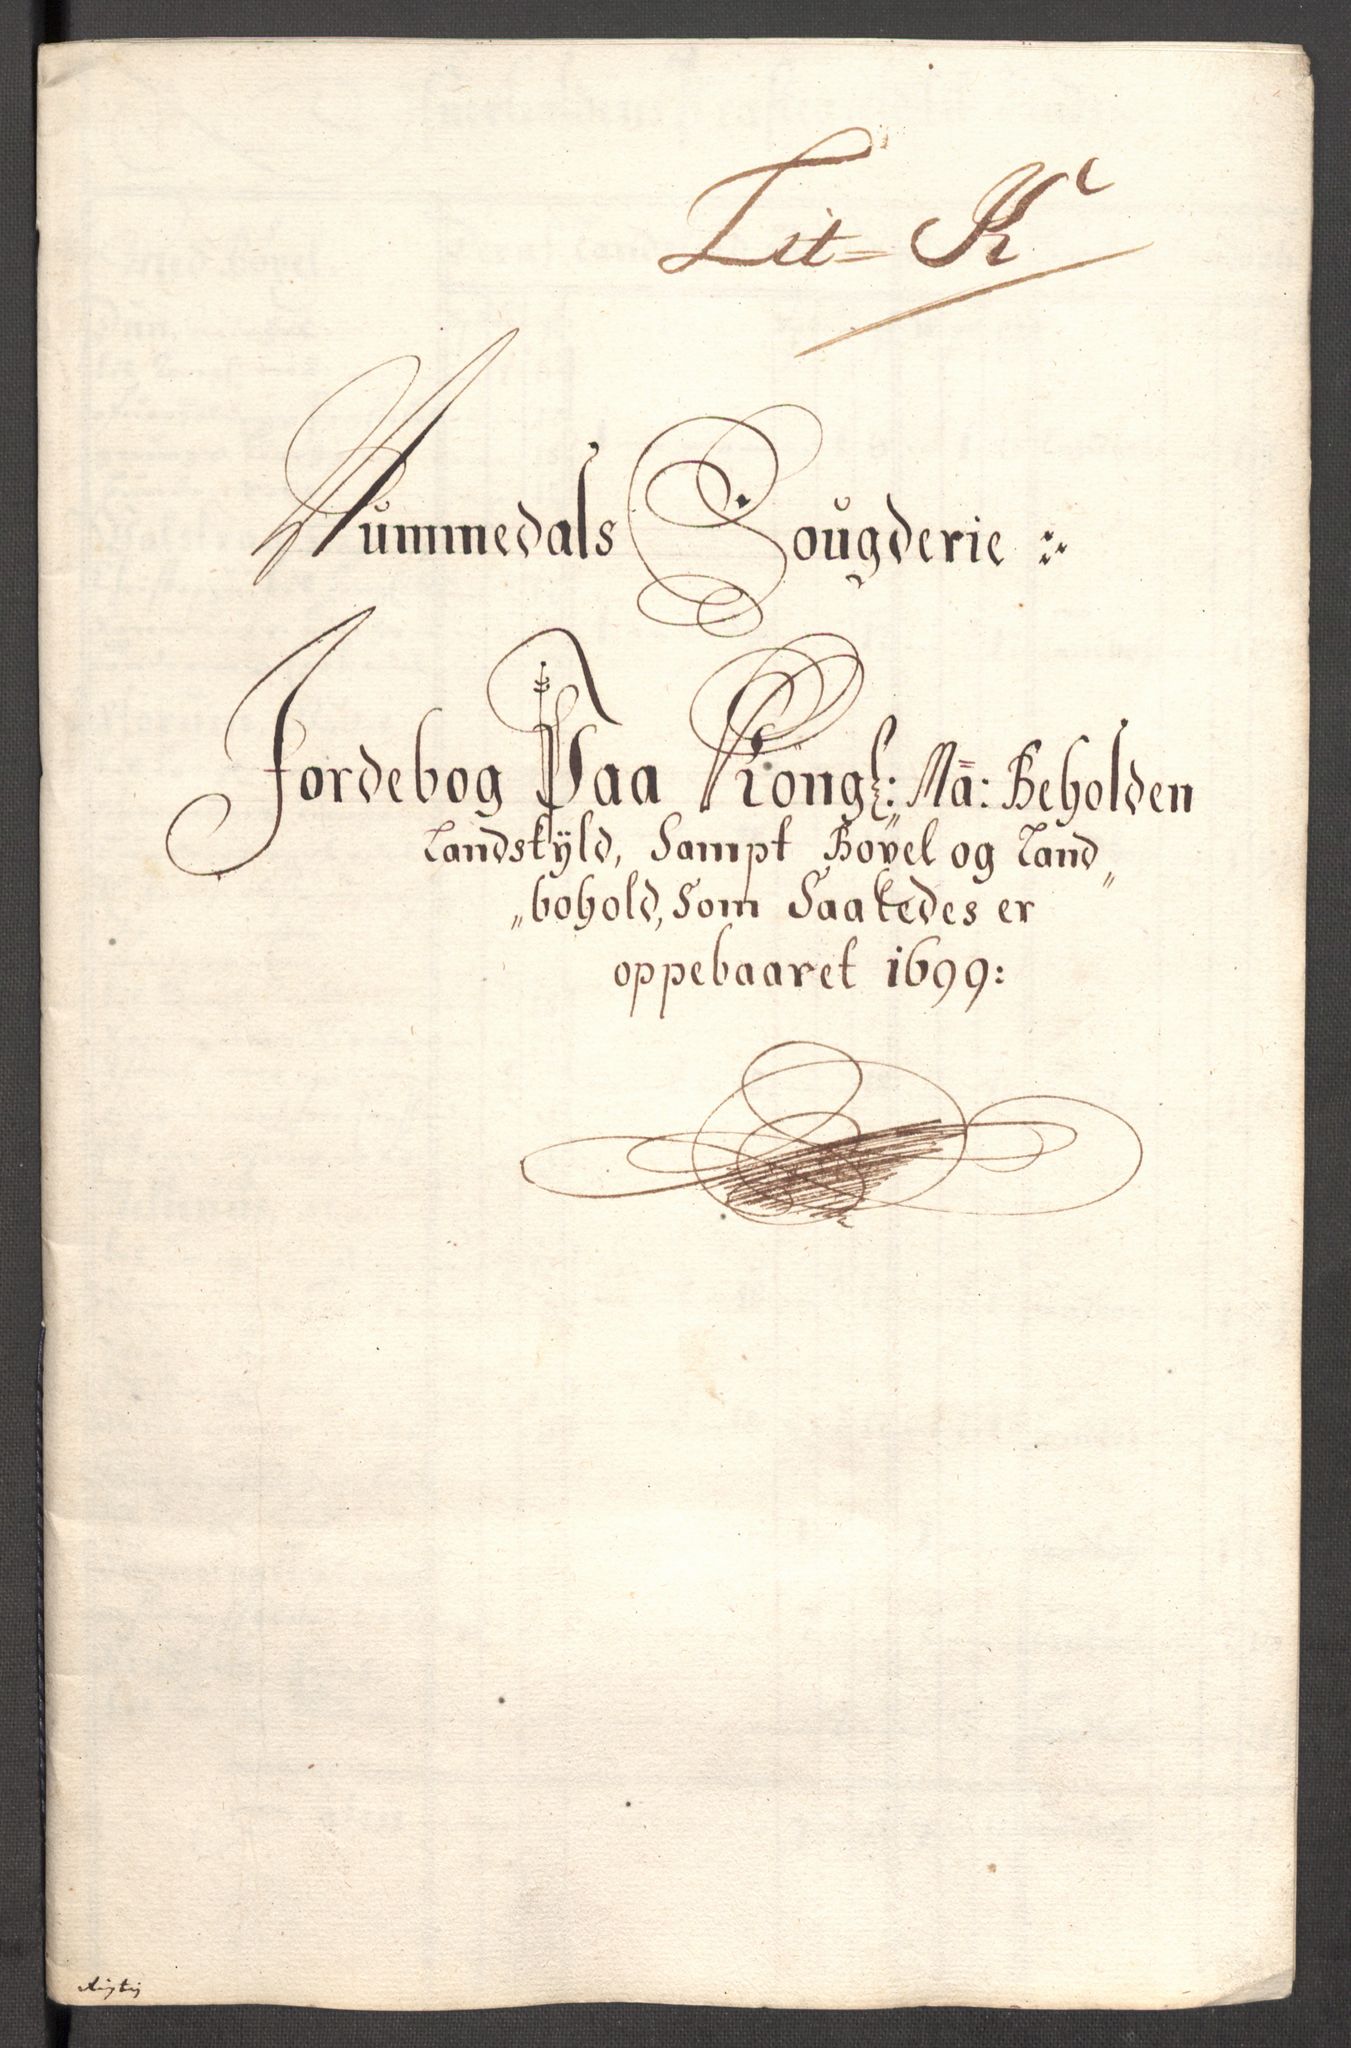 Lit= K
Nummedals Fougderie
Jordebog Paa Kongl: Ma: Beholden
Landskÿld, Sampt Bøxel og Land„
„bohold, Som Saaledes er
oppebaaret 1699:
Rigtig